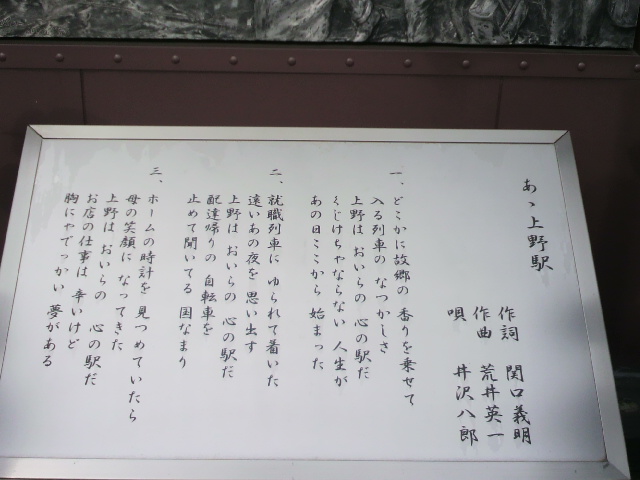 あゝ上野駅
作詞 関口義明
作曲 荒井英一
唄 井沢八郎
一、どこかに故郷の 香りを乗せて
入る列車の なつかしさ
上野は おいらの 心の駅だ
くじけちゃならない 人生が
あの日ここから 始まった
二、就職列車に ゆられて着いた
遠いあの夜を 思い出す
上野は おいらの 心の駅だ
配達帰りの 自転車を
止めて聞いてる 国なまり
三、ホームの時計を 見つめていたら
母の笑顔に なってきた
上野は おいらの 心の駅だ
お店の仕事は 辛いけど
胸にゃでっかい 夢がある